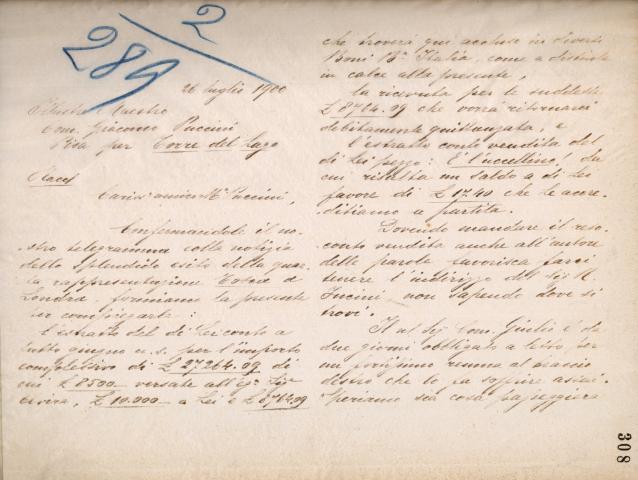 289/2
26 luglio 1900
Illustre Maestro
Com. Giacomo Puccini
Pisa per Torre del Lago
Cariss. amico Mº Puccini,
Confermandole il no-
stro telegramma colla notizia
dello splendido esito della quar-
ta rappresentazione Tosca a
Londra, formiamo la presente
per compiegarle:
l'estratto del di Lei conto a
tutto giugno u.s. per l'importo
complessivo di £ 27,264.09 di
cui £ 8500 versate all'
£ 10.000 a Lei e £ 8,764.09
che troverà qui accluse in diversi
Boni Bª Italia, come a distinta
in calce alla presente,
la ricevuta per le suddette
£ 8764.09 che vorrà ritornarci
debitamente quietanzata, e
l'estratto conto vendita del
di Lei pezzo: E l'uccellino! da
cui risulta un saldo a di Lei
favore di £ 17.40 che le accre-
ditiamo a partita.
Dovendo mandare il reso-
conto vendita anche all'autore
delle parole favorisca farci
tenere l'indirizzo del Sig. R.
Fucini, non sapendo dove si
trovi.
Il ns/ Sig. Com. Giulio è da
due giorni obbligato a letto per
un fortissimo reuma al braccio
destro che lo fa soffrire assai.
Speriamo sia cosa passeggiera
308